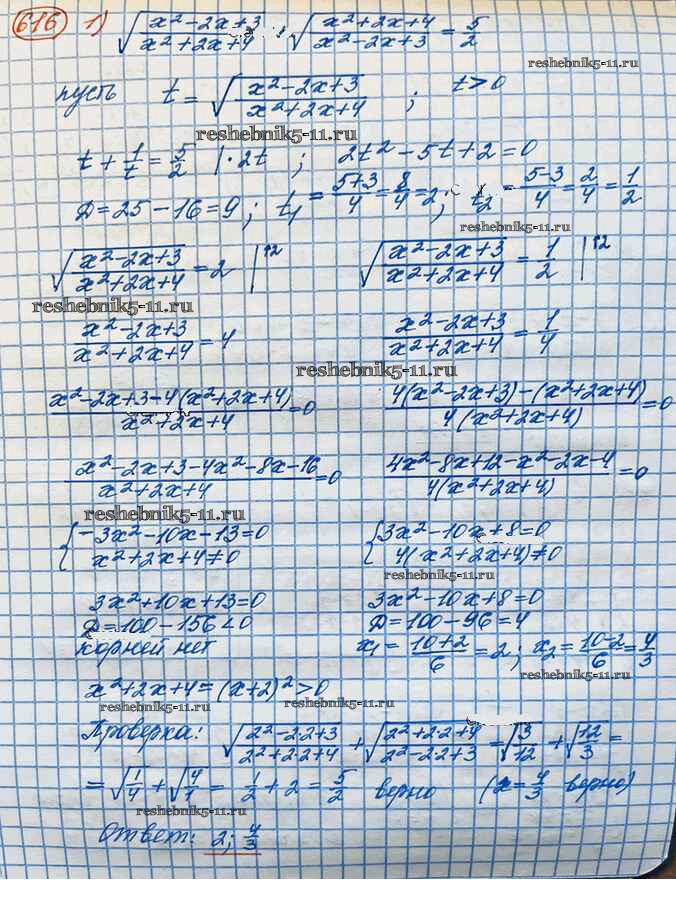 616 1) √((x²-2x+3)/(x²+2x+4)) + √((x²+2x+4)/(x²-2x+3)) = 5/2
reshebnik5-11.ru
пусть t = √((x²-2x+3)/(x²+2x+4)) ; t>0
reshebnik5-11.ru
t + 1/t = 5/2 |·2t ; 2t²-5t+2=0
Д=25-16=9; t₁ = (5+3)/4 = 8/4 = 2; t₂ = (5-3)/4 = 2/4 = 1/2
reshebnik5-11.ru
√((x²-2x+3)/(x²+2x+4)) = 2 |↑2 √((x²-2x+3)/(x²+2x+4)) = 1/2 |↑2
reshebnik5-11.ru
(x²-2x+3)/(x²+2x+4) = 4 (x²-2x+3)/(x²+2x+4) = 1/4
reshebnik5-11.ru
(x²-2x+3-4(x²+2x+4))/(x²+2x+4) = 0 (4(x²-2x+3)-(x²+2x+4))/(4(x²+2x+4)) = 0
(x²-2x+3-4x²-8x-16)/(x²+2x+4) = 0 (4x²-8x+12-x²-2x-4)/(4(x²+2x+4)) = 0
reshebnik5-11.ru
{-3x²-10x-13=0 {3x²-10x+8=0
x²+2x+4≠0 4(x²+2x+4)≠0
reshebnik5-11.ru
3x²+10x+13=0 3x²-10x+8=0
Д=100-156<0 Д=100-96=4
корней нет x₁ = (10+2)/6 = 2; x₂ = (10-2)/6 = 4/3
reshebnik5-11.ru
x²+2x+4=(x+2)²>0
reshebnik5-11.ru reshebnik5-11.ru
Проверка: √((2²-2·2+3)/(2²+2·2+4)) + √((2²+2·2+4)/(2²-2·2+3)) = √(3/12) + √(12/3) =
= √(1/4) + √(4/1) = 1/2 + 2 = 5/2 верно (x=4/3 верно)
Ответ: 2; 4/3